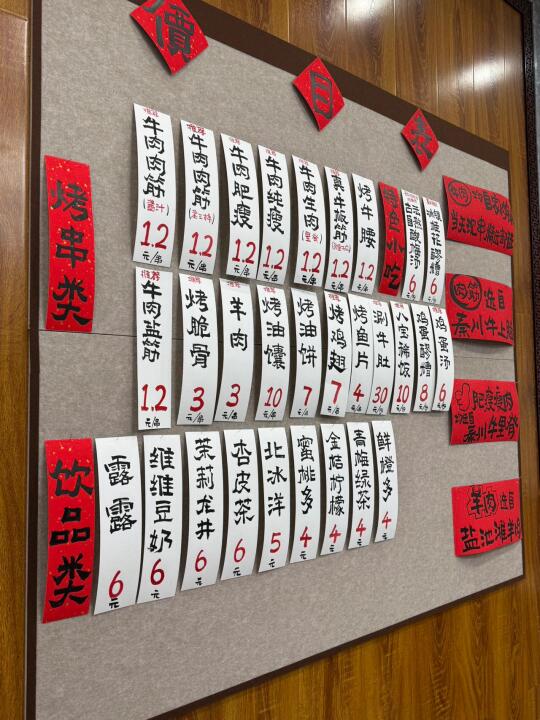 價
目
表
烤串类
推荐
牛肉肉筋
(酱汁)
1.2
元/串
推荐
牛肉肉筋
1.2
元/串
推荐
牛肉肥瘦
1.2
元/串
推荐
牛肉纯瘦
1.2
元/串
推荐
牛肉生肉
1.2
元/串
推荐
真牛板筋
1.2
元/串
烤牛腰
1.2
元/串
特色小吃
6
元
6
元
推荐
牛肉盐筋
1.2
元/串
推荐
烤脆骨
3
元/串
推荐
羊肉
3
元/串
推荐
烤油馕
10
元/个
推荐
烤油饼
7
元/个
推荐
烤鸡翅
7
元/串
烤鱼片
4
元/串
涮牛肚
30
元/份
八宝稀饭
10
元/份
鸡蛋醪糟
8
元/份
鸡蛋汤
6
元/份
饮品类
露露
6
元
维维豆奶
6
元
茉莉龙井
6
元
杏皮茶
6
元
北冰洋
5
元
蜜桃多
4
元
金桔柠檬
4
元
青梅绿茶
4
元
鲜橙多
4
元
牛肉
肉筋 选自
秦川牛上脑
肥瘦瘦肉
选自秦川牛里脊
羊肉 选自
盐池滩羊肉